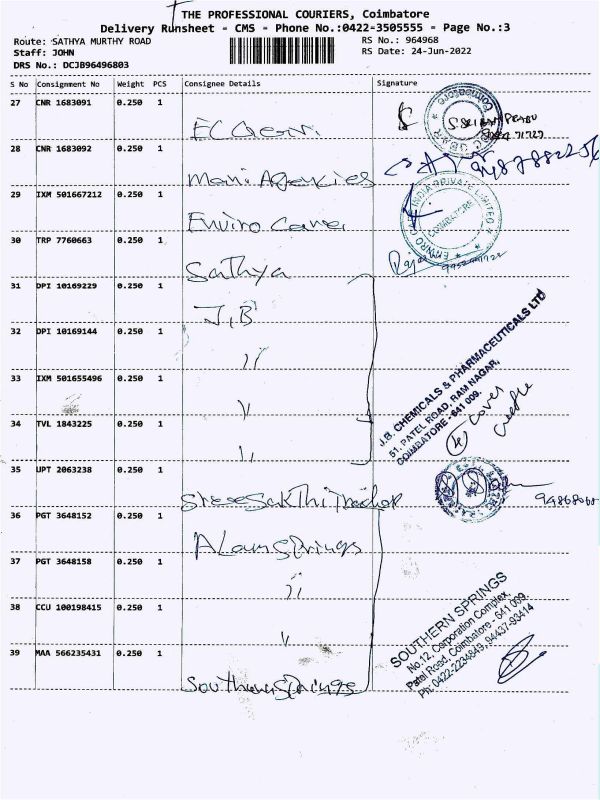 THE PROFESSIONAL COURIERS, Coimbatore
Delivery Runsheet - CMS - Phone No.:0422-3505555 - Page No.:3
Route: SATHYA MURTHY ROAD
RS No.: 964968
Staff: JOHN
RS Date: 24-Jun-2022
DRS No.: DCJB96496803
S No Consignment No Weight PCS Consignee Details Signature
27 CNR 1683091 0.250 1
28 CNR 1683092 0.250 1 Mani Agencies
29 IXM 501667212 0.250 1 Enviro Care
30 TRP 7760663 0.250 1 Sathya
31 DPI 10169229 0.250 1 J.B
32 DPI 10169144 0.250 1 "
33 IXM 501655496 0.250 1 "
34 TVL 1843225 0.250 1 "
35 UPT 2063238 0.250 1
36 PGT 3648152 0.250 1
37 PGT 3648158 0.250 1 "
38 CCU 100198415 0.250 1 "
39 MAA 566235431 0.250 1 Southern Springs
COIMBATORE
J.B. CHEMICALS & PHARMACEUTICALS LTD
51, PATEL ROAD, RAM NAGAR,
COIMBATORE - 641 009.
4 cover
SOUTHERN SPRINGS
No.12, Corporation Complex,
Patel Road, Coimbatore - 641 009.
Ph: 0422-2234849, 94437-93414